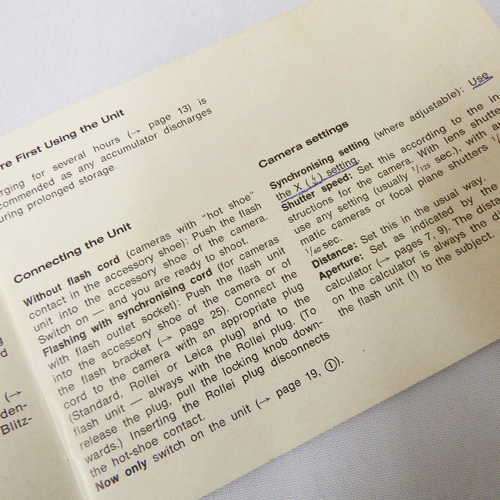 re First Using the Unit
rging for several hours (→ page 13) is
commended as any accumulator discharges
uring prolonged storage.
Connecting the Unit
Without flash cord (cameras with "hot shoe"
contact in the accessory shoe): Push the flash
unit into the accessory shoe of the camera.
Switch on — and you are ready to shoot.
Flashing with synchronising cord (for cameras
with flash outlet socket): Push the flash unit
into the accessory shoe of the camera or of
the flash bracket (→ page 25). Connect the
cord to the camera with an appropriate plug
(Standard, Rollei or Leica plug) and to the
flash unit — always with the Rollei plug. (To
release the plug, pull the locking knob down-
wards.) Inserting the Rollei plug disconnects
the hot-shoe contact.
Now only switch on the unit (→ page 19, ①).
Camera settings
Synchronising setting (where adjustable): Use
the X (ϟ) setting.
Shutter speed: Set this according to the in-
structions for the camera. With lens shutte
use any setting (usually 1/125 sec.), with au
matic cameras or focal plane shutters
1/40 sec.
Distance: Set this in the usual way.
Aperture: Set as indicated by the
calculator (→ pages 7, 9). The dista
on the calculator is always the c
the flash unit (!) to the subject.
d
(→
den-
Blitz-